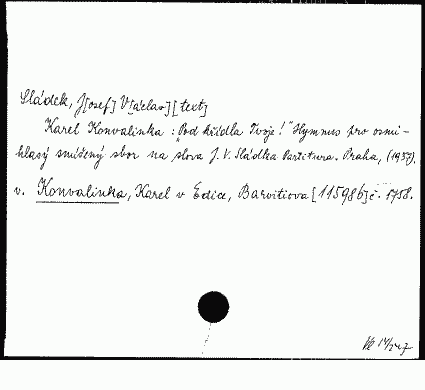 Sládek, J[osef] V[áclav] [text]
Karel Konvalinka : "Pod křídla Tvoje!" Hymnus pro osmi-
hlasý smíšený sbor na slova J. V. Sládka Partitura. Praha, (1937).
v. Konvalinka, Karel v Edice, Barvitiova [115986] č. 1758.